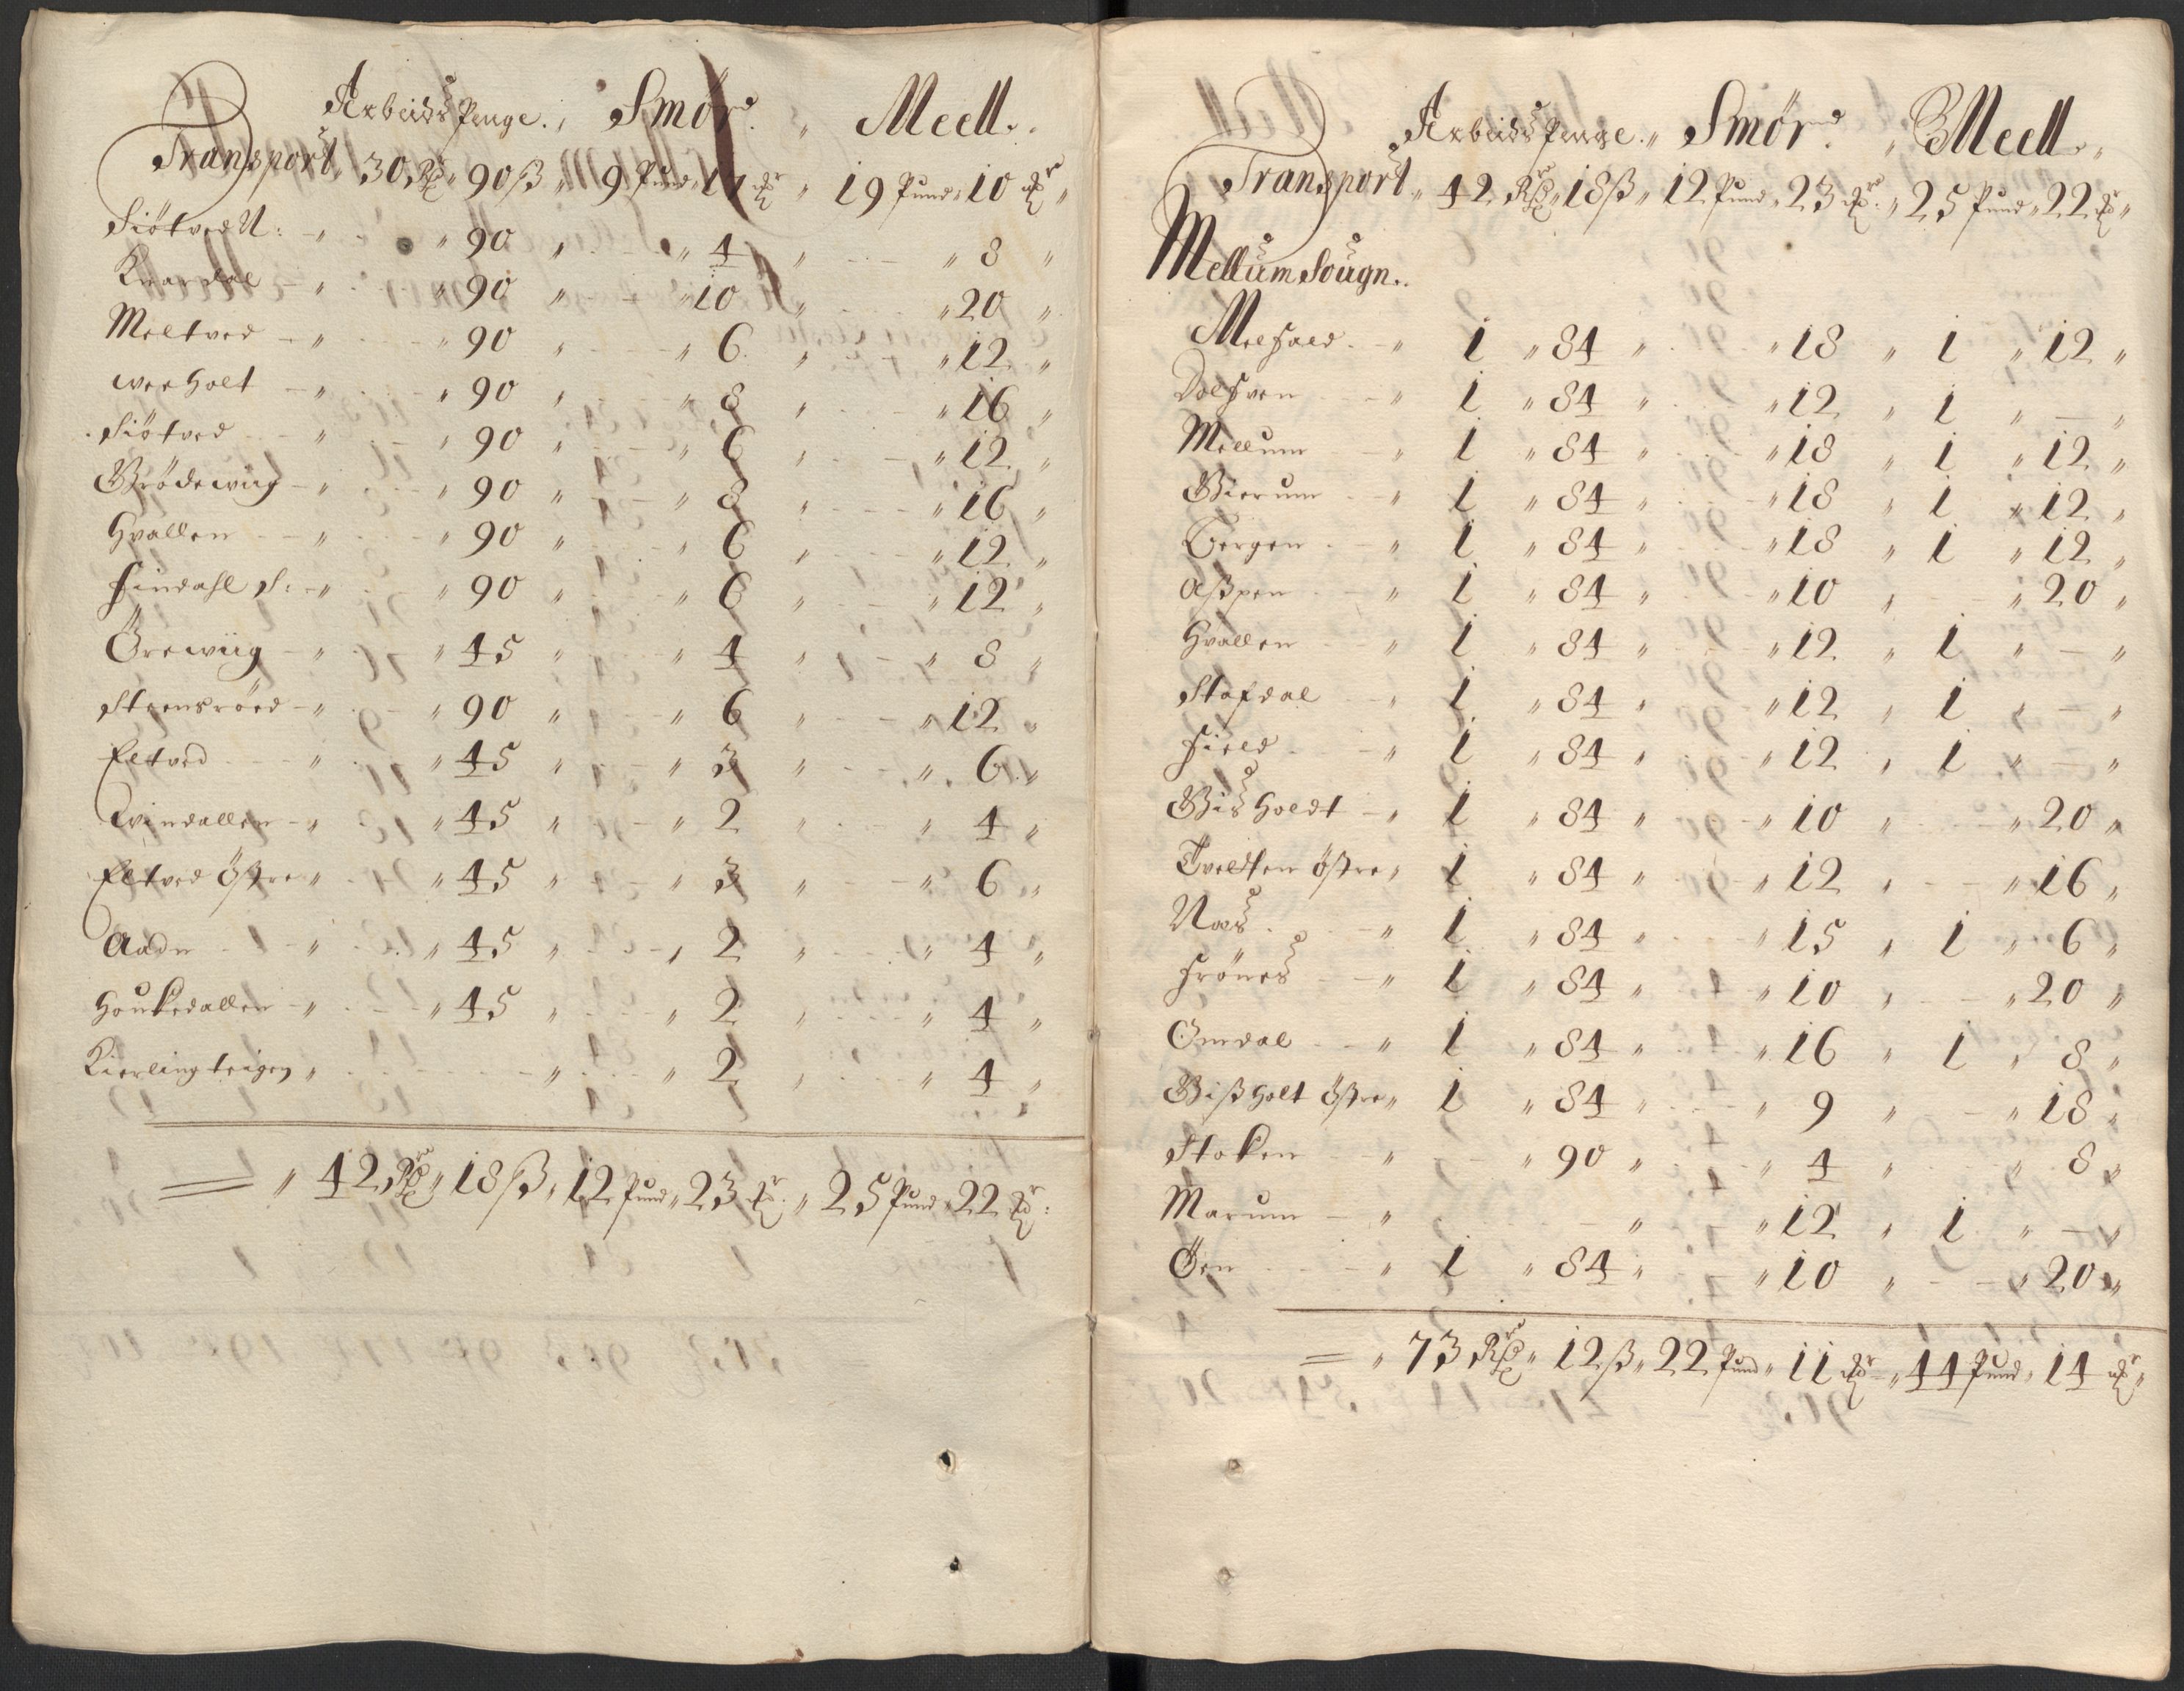 Arbeids Penge. Smør. Meell.
Transport 30 Rd 90 ß 9 Pund 17 Pd 19 Pund 10 Pd
Siötved N: 90 4 8
Kuardal 90 10 20
Meltved 90 6 12
werholt 90 8 16
Siötved 90 6 12
Brödewiig 90 8 16
Hvallen 90 6 12
Findahl S: 90 6 12
Örewiig 45 4 8
Steensröed 90 6 12
Eltved 45 3 6
Evindallen 45 2 4
Eltved Östre 45 3 6
Aadn 45 2 4
Houkedallen 45 2 4
Kierlingteigen 2 4
42 Rd 18 ß 12 Pund 23 Pd 25 Pund 22 Pd:
Arbeids Penge. Smør. Meell.
Transport 42 Rd 18 ß 12 Pund 23 Pd. 25 Pund 22 Pd
Mellum Sougn.
1 84 18 1 12
1 84 12 1 —
Mellum 1 84 18 1 12
Bierum 1 84 18 1 12
Bergen 1 84 18 1 12
Aßpen 1 84 10 20
Hvallen 1 84 12 1 —
Stafdal 1 84 12 1 —
Field 1 84 12 1 —
Bisholdt 1 84 10 20
Tveldten östre 1 84 12 16
Næs 1 84 15 1 6
Frönes 1 84 10 20
Omdal 1 84 16 1 8
Bißholt Östre 1 84 9 18
Stoken 90 4 8
Marum 12 1 —
Öen 1 84 10 20
73 Rd 12 ß 22 Pund 11 Pd 44 Pund 14 Pd